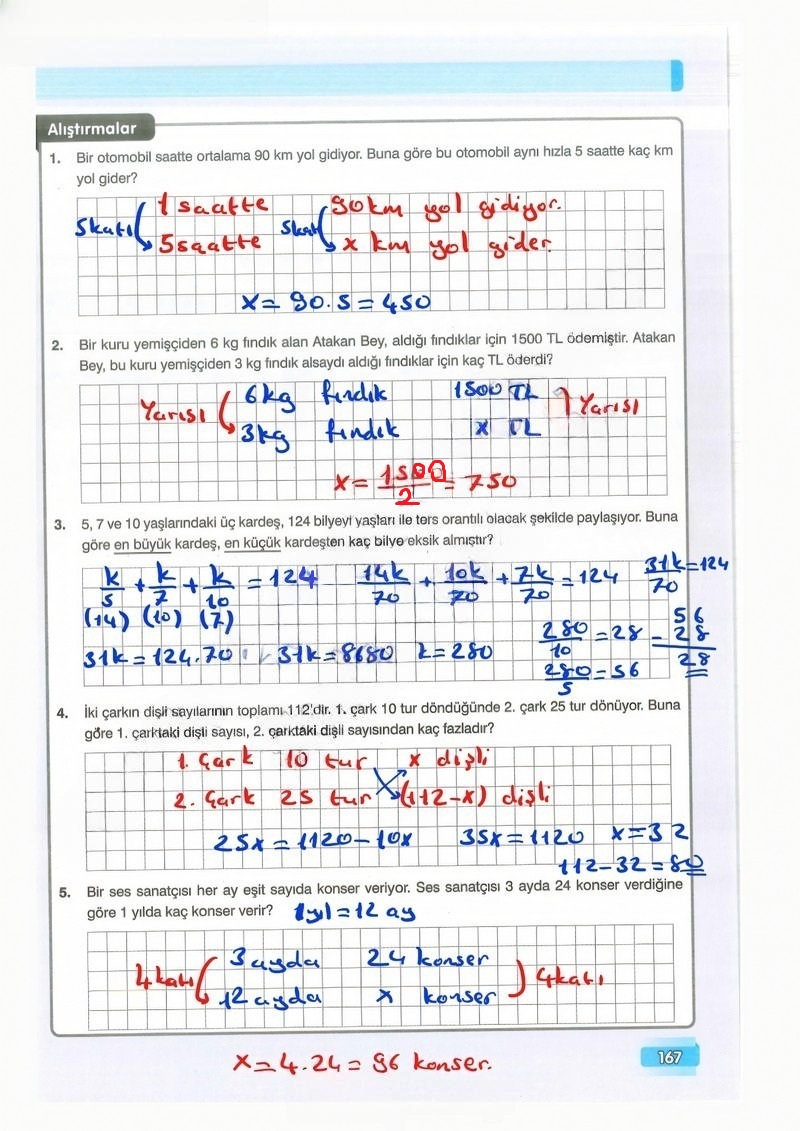 Alıştırmalar
1. Bir otomobil saatte ortalama 90 km yol gidiyor. Buna göre bu otomobil aynı hızla 5 saatte kaç km
yol gider?
5katı 1 saatte 5kat 90km yol gidiyor.
5saatte x km yol gider.
x = 90.5 = 450
2. Bir kuru yemişçiden 6 kg fındık alan Atakan Bey, aldığı fındıklar için 1500 TL ödemiştir. Atakan
Bey, bu kuru yemişçiden 3 kg fındık alsaydı aldığı fındıklar için kaç TL öderdi?
Yarısı 6kg fındık 1500 TL Yarısı
3kg fındık x TL
x = 1500/2 = 750
3. 5, 7 ve 10 yaşlarındaki üç kardeş, 124 bilyeyi yaşları ile ters orantılı olacak şekilde paylaşıyor. Buna
göre en büyük kardeş, en küçük kardeşten kaç bilye eksik almıştır?
k/5 + k/7 + k/10 = 124 14k/70 + 10k/70 + 7k/70 = 124 31k/70 = 124
(14) (10) (7)
31k = 124.70 31k = 8680 k = 280
280/10 = 28
280/5 = 56
56
- 28
28
4. İki çarkın dişli sayılarının toplamı 112'dir. 1. çark 10 tur döndüğünde 2. çark 25 tur dönüyor. Buna
göre 1. çarktaki dişli sayısı, 2. çarktaki dişli sayısından kaç fazladır?
1. Çark 10 tur x dişli
2. Çark 25 tur (112-x) dişli
25x = 1120 - 10x 35x = 1120 x = 32
112-32 = 80
5. Bir ses sanatçısı her ay eşit sayıda konser veriyor. Ses sanatçısı 3 ayda 24 konser verdiğine
göre 1 yılda kaç konser verir? 1yıl = 12 ay
4katı 3 ayda 24 konser 4katı
12 ayda x konser
x = 4.24 = 96 konser.
167